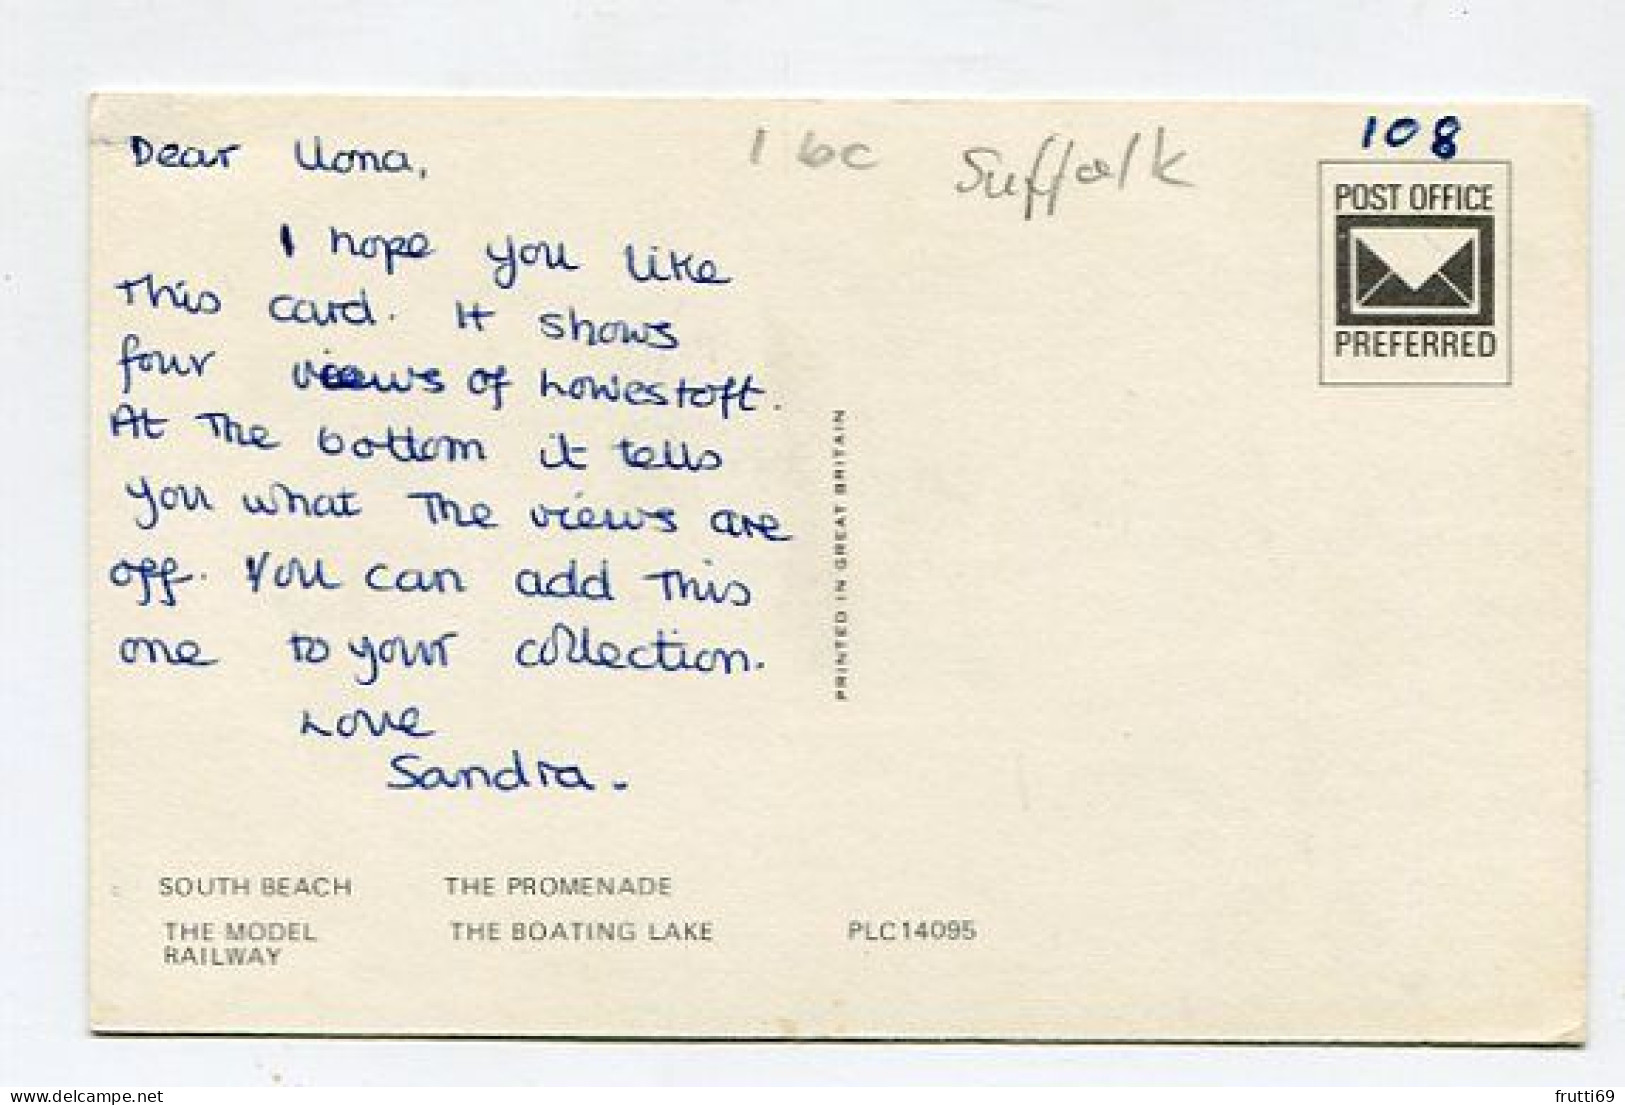 108
1 60c Suffolk
POST OFFICE
PREFERRED
Dear Uona,
I hope you like
This card. It shows
four views of Lowestoft.
At The bottom it tells
you what The views are
off. You can add This
one to your collection.
Love
Sandra.
PRINTED IN GREAT BRITAIN
SOUTH BEACH THE PROMENADE
THE MODEL THE BOATING LAKE PLC14095
RAILWAY
delcampe.net
frutti69